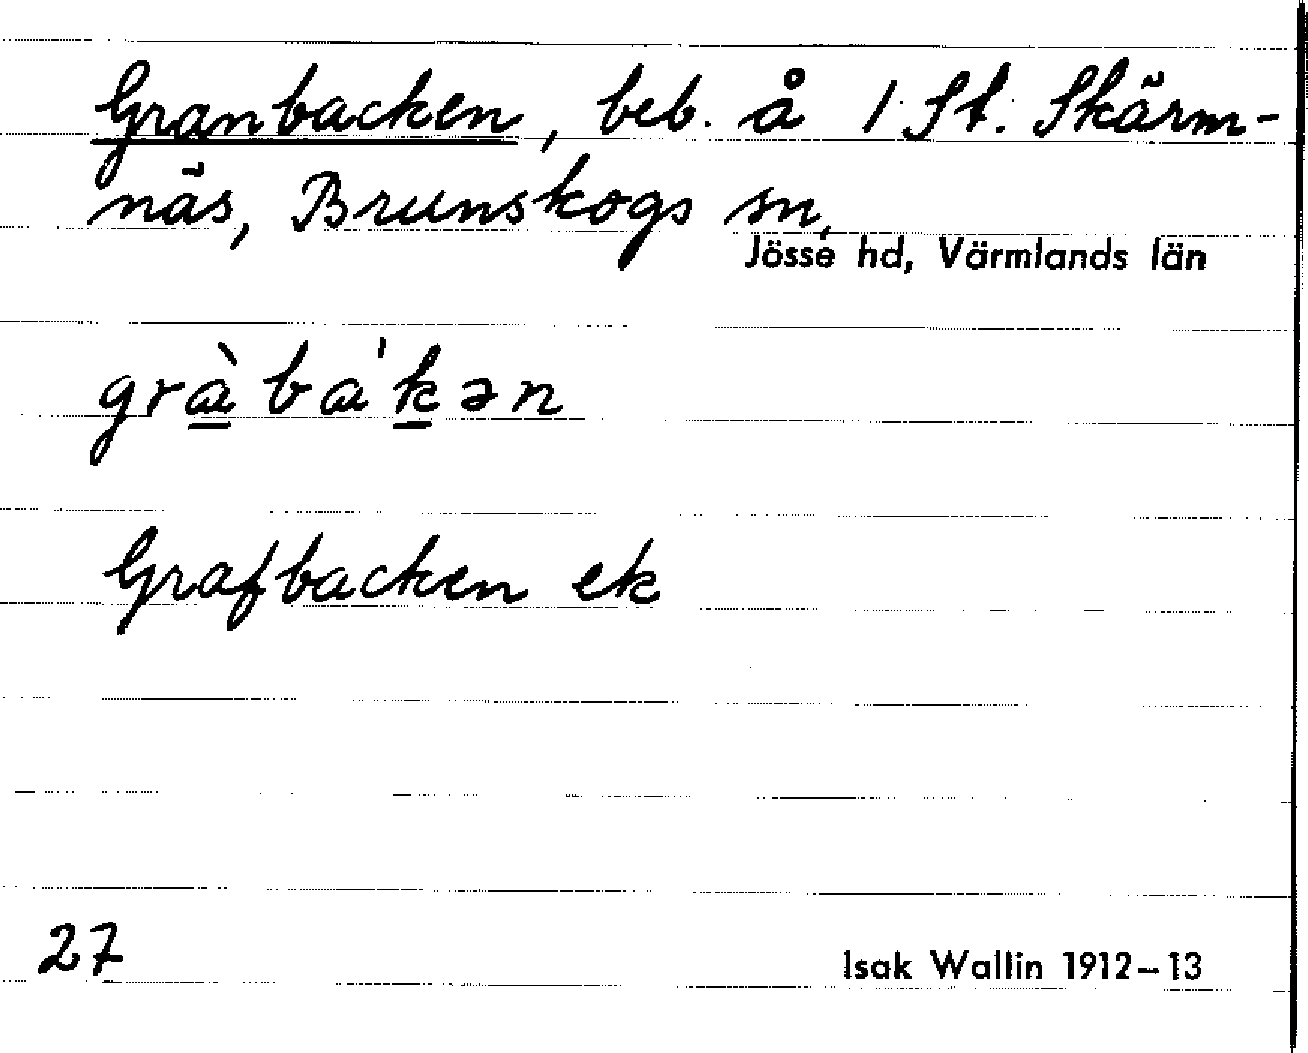 Granbacken, beb. å 1 St. Skärm-
näs, Brunskogs sn,
Jösse hd, Värmlands län
grà̱ba'ḵən
Grafbacken ek
27
Isak Wallin 1912–13